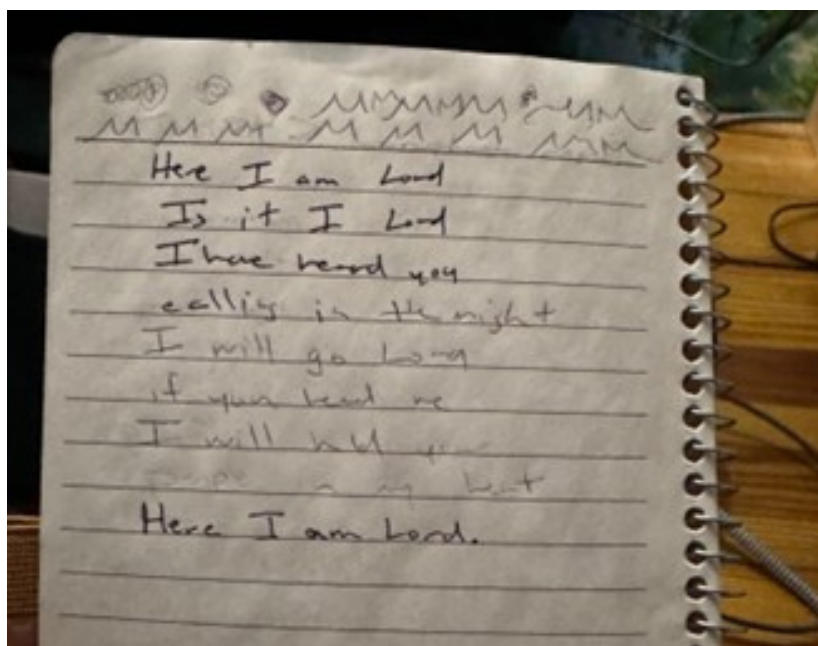 Here I am Lord
Is it I Lord
I have heard you
calling in the night
I will go Lord
if you lead me
I will hold your
people in my heart
Here I am Lord.